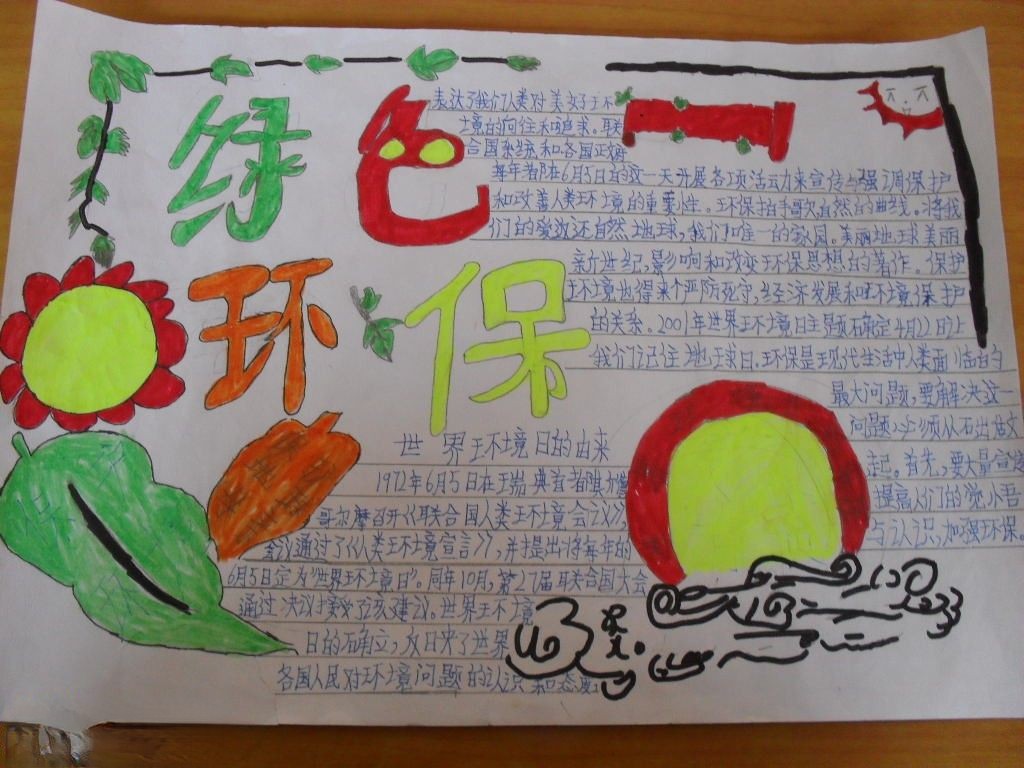 绿色
环保
世界环境日的由来
1972年6月5日在瑞典首都
哥尔摩召开《联合国人类环境会议》,
会议通过了《人类环境宣言》,并提出将每年的
6月5日定为"世界环境日"。同年10月,第27届联合国大会
通过决议接受了该建议。世界环境
日的确立,反日来了世界
各国人民对环境问题的认识和态度
表达了我们人类对美好环
境的向往和追求。联
合国系统和各国正府
每年都在6月5日的这一天开展各项活动来宣传与强调保护
和改善人类环境的重要性。环保拍手歌自然的曲线。将我
们的爱返还自然地球,我们唯一的家园。美丽地球美丽
新世纪,影响和改变环保思想的著作。保护
环境也得来个严防死守,经济发展和环境保护
的关系。2001年世界环境日主题确定4月22日让
我们记住地球日,环保是现代生活中人类面临的
最大问题,要解决这一
问题必须从
起。首先,要大量宣传
提高人们的觉
与认识,加强环保。